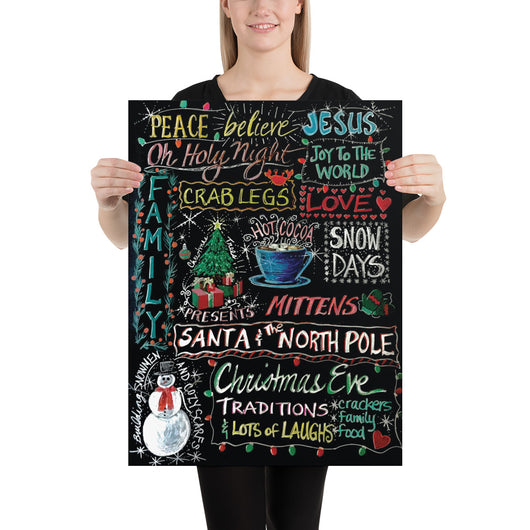 PEACE believe JESUS
Oh Holy Night
JOY TO THE
WORLD
FAMILY
CRAB LEGS
LOVE
Christmas Trees
HOT COCOA
SNOW
DAYS
PRESENTS
MITTENS
SANTA & The NORTH POLE
Building SNOWMEN
AND COZY SCARVES
Christmas Eve
TRADITIONS
& LOTS of LAUGHS
crackers
family
food